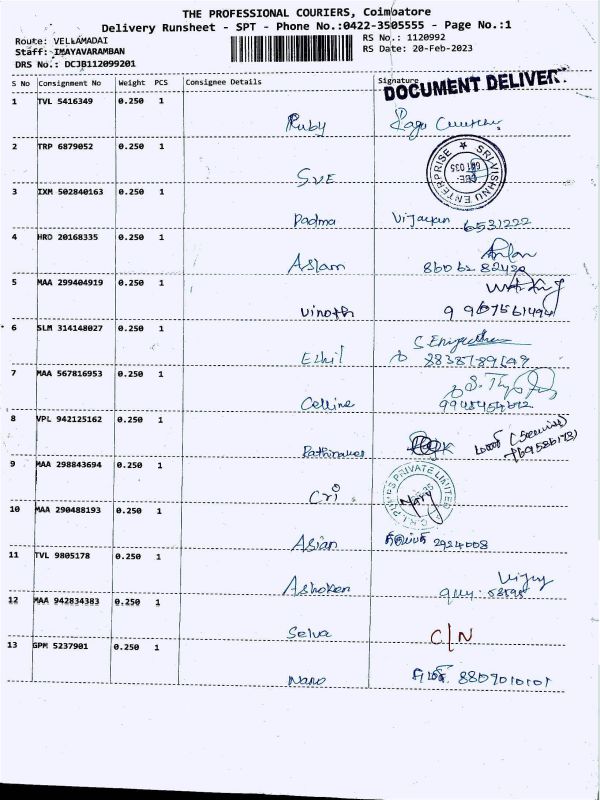 THE PROFESSIONAL COURIERS, Coimbatore
Delivery Runsheet - SPT - Phone No.:0422-3505555 - Page No.:1
Route: VELLAMADAI RS No.: 1120992
Staff: IMAYAVARAMBAN RS Date: 20-Feb-2023
DRS No.: DCJB112099201
S No Consignment No Weight PCS Consignee Details Signature
DOCUMENT DELIVER
1 TVL 5416349 0.250 1
Ruby
2 TRP 6879052 0.250 1
SVE
SRI VISHNU ENTERPRISE
CBE
641 035
3 IXM 502840163 0.250 1
Padma Vijayan 6531222
4 HRO 20168335 0.250 1
Aslam
5 MAA 299404919 0.250 1
Vinoth
6 SLM 314148027 0.250 1
Ezhil
7 MAA 567816953 0.250 1
Celline
8 VPL 942125162 0.250 1
9 MAA 298843694 0.250 1
Cri
C.R.I. PUMPS PRIVATE LIMITED
10 MAA 290488193 0.250 1
Asian 2924008
11 TVL 9805178 0.250 1
Vijay
Ashoken
12 MAA 942834383 0.250 1
Selva C/N
13 GPM 5237901 0.250 1
Nano 8807010101